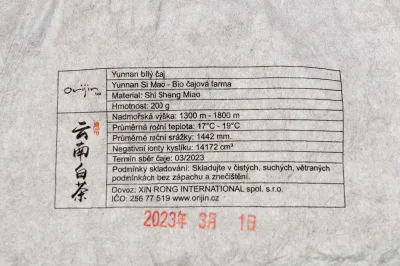 Orijin
Yunnan bílý čaj
Yunnan Si Mao - Bio čajová farma
Material: Shi Sheng Miao
Hmotnost: 200 g
Nadmořská výška: 1300 m - 1800 m
Průměrná roční teplota: 17°C - 19°C
Průměrné roční srážky: 1442 mm.
Negativní ionty kyslíku: 14172 cm³
Termín sběr čaje: 03/2023
Podmínky skladování: Skladujte v čistých, suchých, větraných
podmínkách bez zápachu a znečištění.
Dovoz: XIN RONG INTERNATIONAL spol. s.r.o.
IČO: 256 77 519 www.orijin.cz
云南白茶
2023年 3月 1日